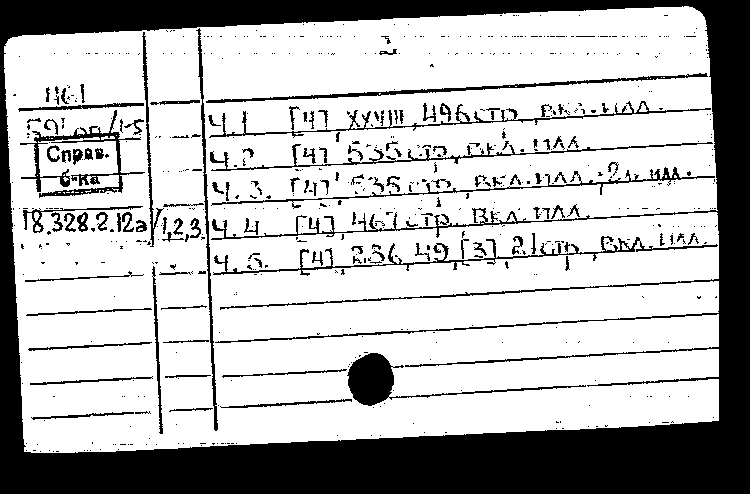 2
461
591 оп/1-5
Ч. 1 [4], XXVIII, 496 стр., вкл. илл.
Ч. 2. [4], 535 стр., вкл. илл.
Справ. б-ка
Ч. 3. [4], 535 стр., вкл. илл.; 2 л. илл.
18.328.2.12а/1,2,3
Ч. 4. [4], 467 стр., вкл. илл.
Ч. 5. [4], 236, 49, [3], 21 стр., вкл. илл.